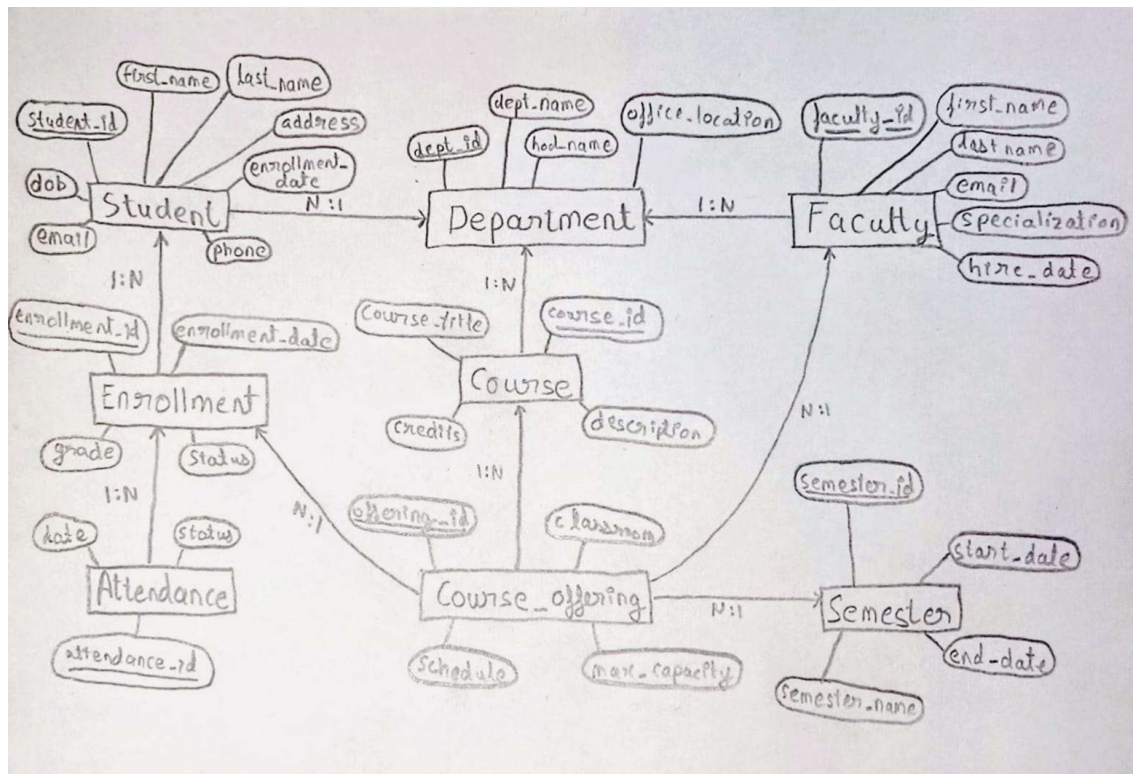 first_name
last_name
student_id
address
enrollment_
date
dob
Student
email
phone
dept_name
office_location
dept_id
hod_name
Department
faculty_id
first_name
last name
email
specialization
Faculty
hire_date
N:1
1:N
1:N
1:N
enrollment_id
enrollment_date
Enrollment
grade
status
course_title
course_id
Course
credits
description
N:1
1:N
1:N
N:1
date
status
Attendance
attendance_id
offering_id
classroom
Course_offering
schedule
max_capacity
N:1
semester_id
start_date
Semester
end_date
semester_name